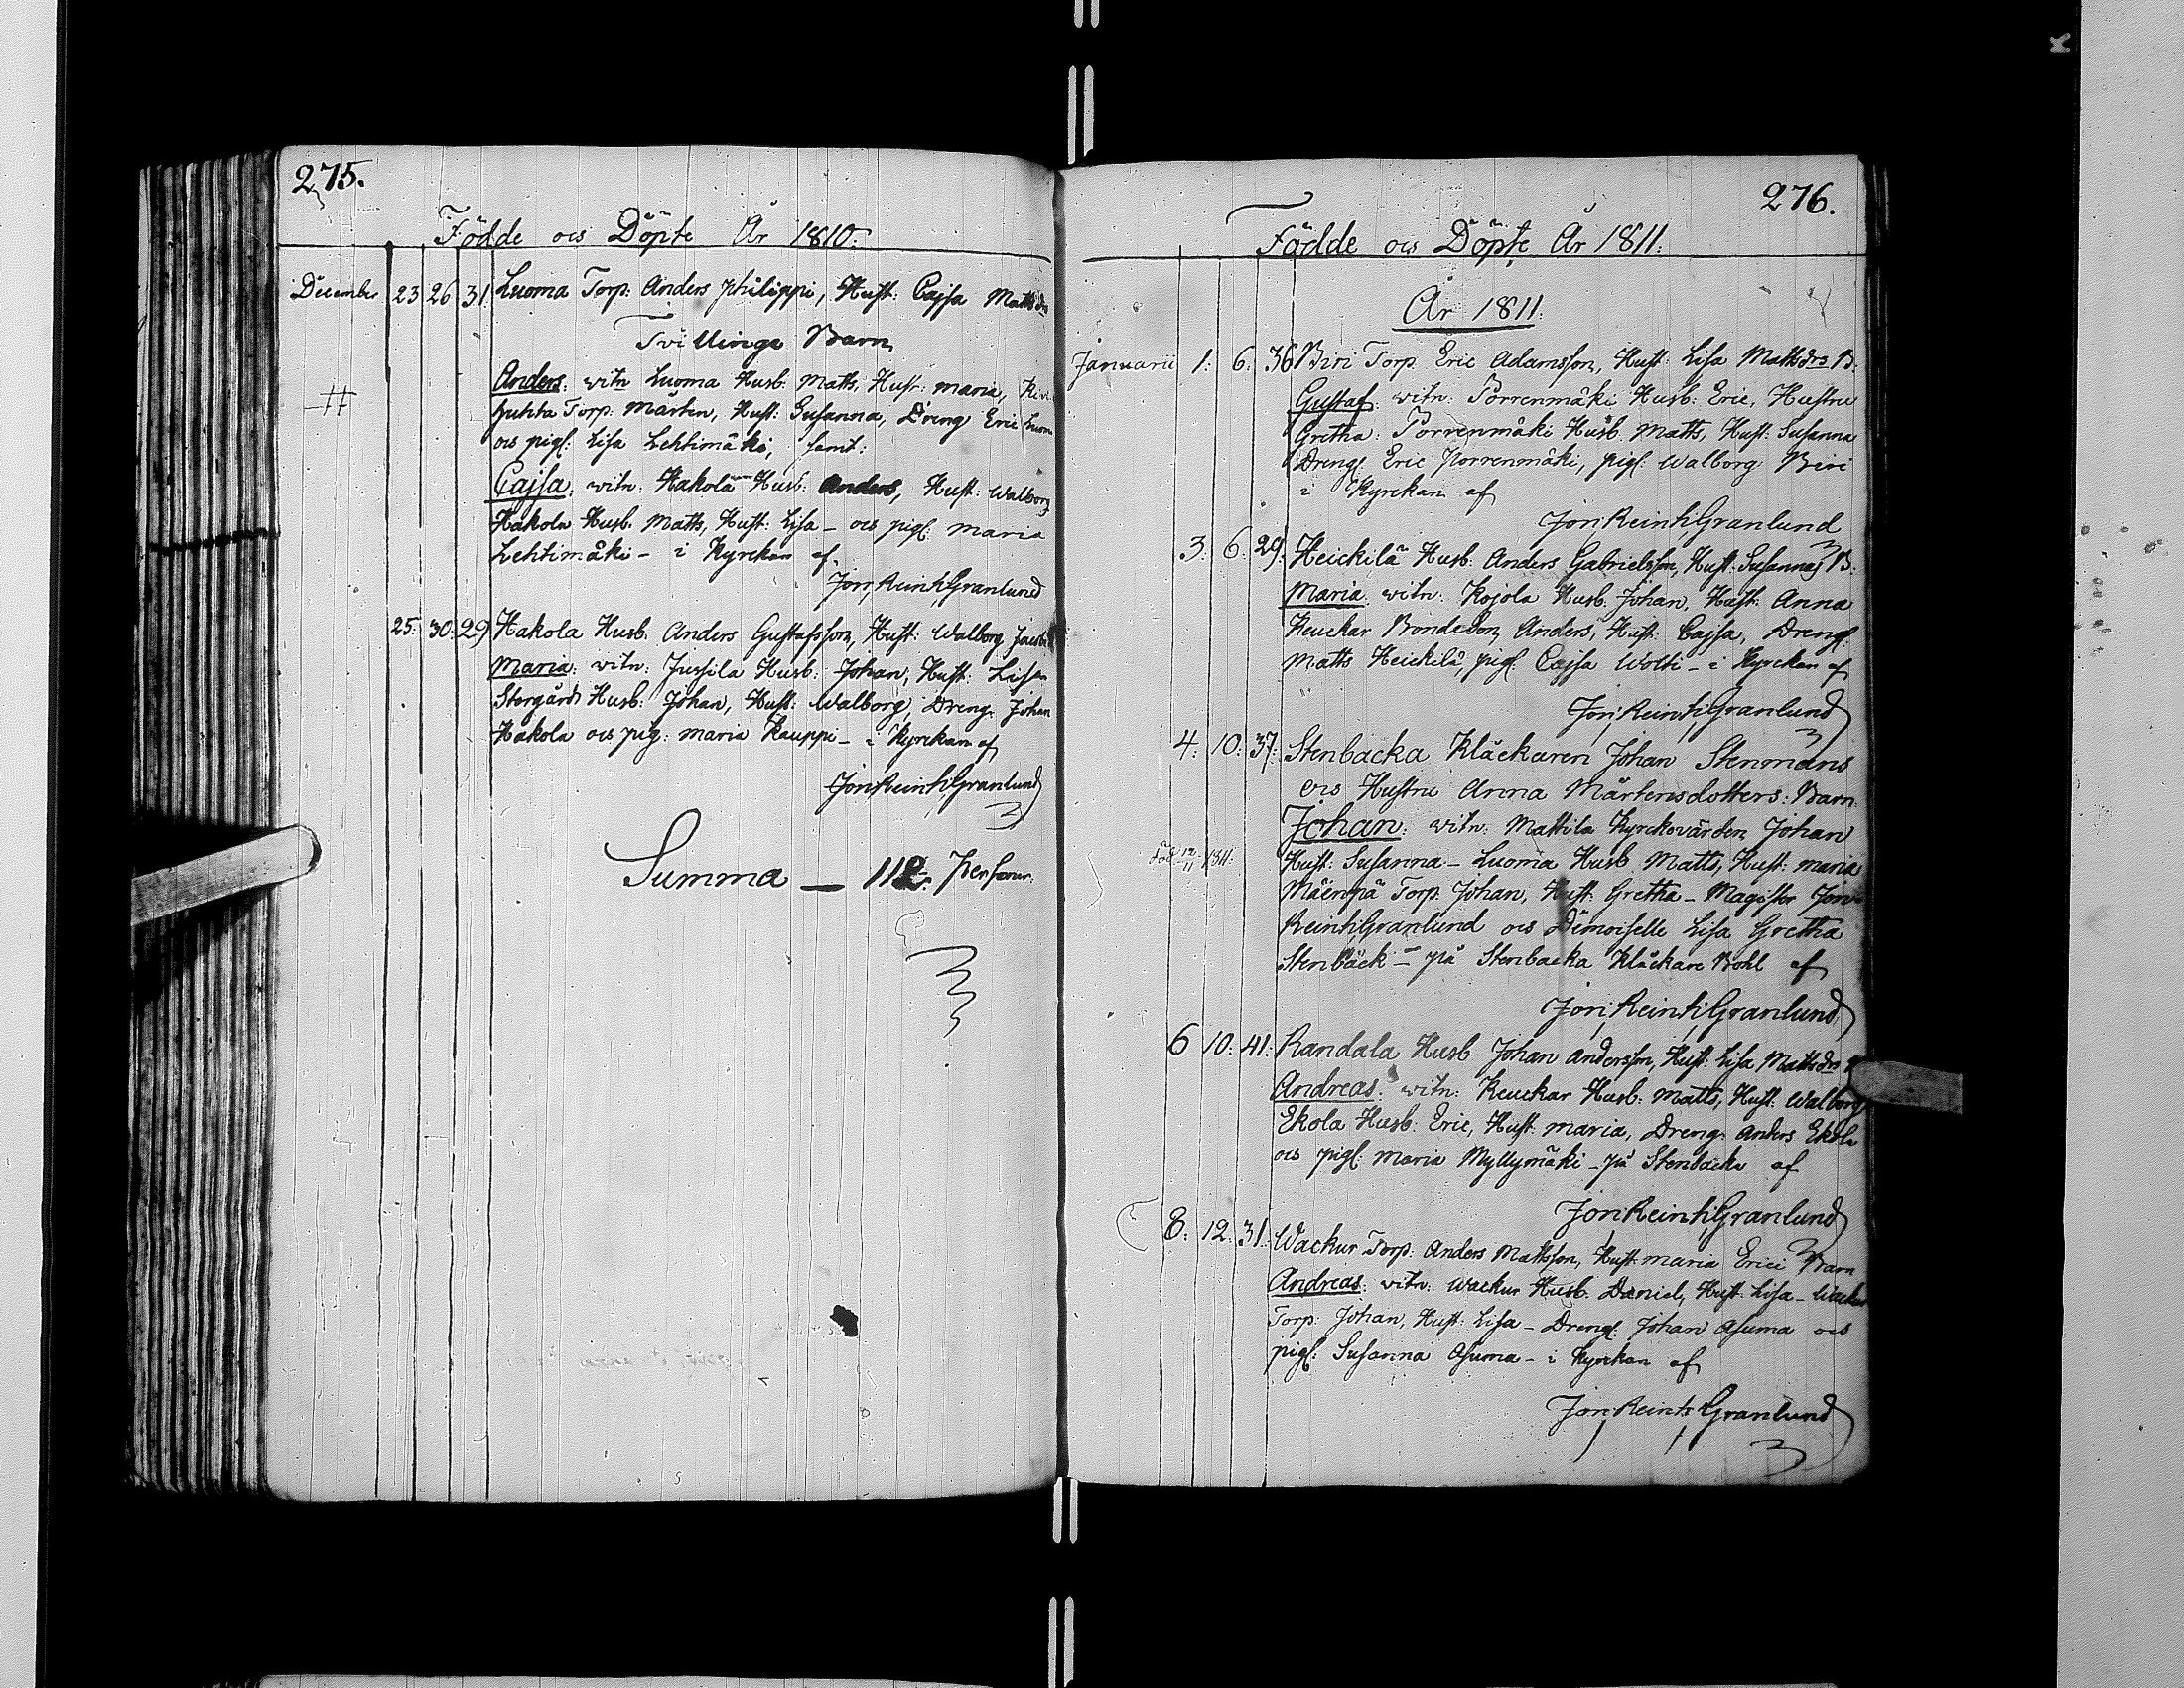 275.
Födde och Döpte År 1810.
December 23 26 31. Luoma Torp: Anders Philippi, Hust: Cajsa Matts dr
Tvillinge Barn
Anders: witn Luoma Husb: Matts, Hustr: Maria,
Torp: Mårten, Hust: Susanna, Dreng Eric Luom
och pigs: Lisa Lehtimäki, samt:
Cajsa: witn: Hakola Husb: Anders, Hust: Walborg
Hakola Husb. Matts, Hust: Lisa – och pigs: Maria
Lehtimäki – i Kyrckan af
Jon. Reinh. Granlund
25: 30: 29 Hakola Husb. Anders Gustafsson, Hust: Walborg Jacobi
Maria: witn: Jussila Husb: Johan, Hust: Lisa
Storgårds Husb: Johan, Hust: Walborg, Dreng: Johan
Hakola och pig: Maria Kauppi – i Kyrckan af
Jon. Reinh. Granlund
Summa — 112. Personer.
276.
Födde och Döpte År 1811.
År 1811.
Januarii 1: 6: 36 Biri Torp. Eric Adamsson, Hust: Lisa Mattsdr: B:
Gustaf: witn: Porrenmäki Husb: Eric, Hustru
Gretha: Porrenmäki Husb. Matts, Hust: Susanna
Drengs: Eric Porrenmäki, pigs: Walborg Biri
i Kyrckan af
Jon. Reinh. Granlund
3: 6: 29: Heickilä Husb: Anders Gabrielsson, Hust: Susannas B:
Maria: witn: Kojola Husb. Johan, Hustr: Anna
Keuckar Bondeson Anders, Hust: Cajsa, Drengs:
Matts Heickilä, pigs: Cajsa Wolti – i Kyrckan af
Jon. Reinh. Granlund
4: 10: 37: Stenbacka Klåckaren Johan Stenmans
och Hustru Anna Mårtensdotters: Barn
Johan: witn: Mattila Kyrckovärden Johan
Hust: Susanna – Luoma Husb Matts, Hust: Maria
Mäenpä Torp. Johan, Hust: Gretha – Magister Jon
Reinh. Granlund och Demoiselle Lisa Gretha
Stenbäck – på Stenbacka Klåckare Bohl af
Jon. Reinh. Granlund
6 10: 41: Randala Husb Johan Andersson, Hust: Lisa Mattsdr
Andreas: witn: Keuckar Husb: Matts, Hust: Walborg
Ekola Husb: Eric, Hust: Maria, Dreng: Anders Ekola
och pigs: Maria Myllymäki – på Stenbacka af
Jon. Reinh. Granlund
8: 12: 31: Wackur Torp: Anders Mattsson, Hust: Maria Erici Barn
Andreas: witn: Wackur Husb. Daniel, Hust: Lisa – Wackur
Torp: Johan, Hust: Lisa – Drengs: Johan Asuma och
pigs: Susanna Asuma – i Kyrckan af
Jon. Reinh. Granlund